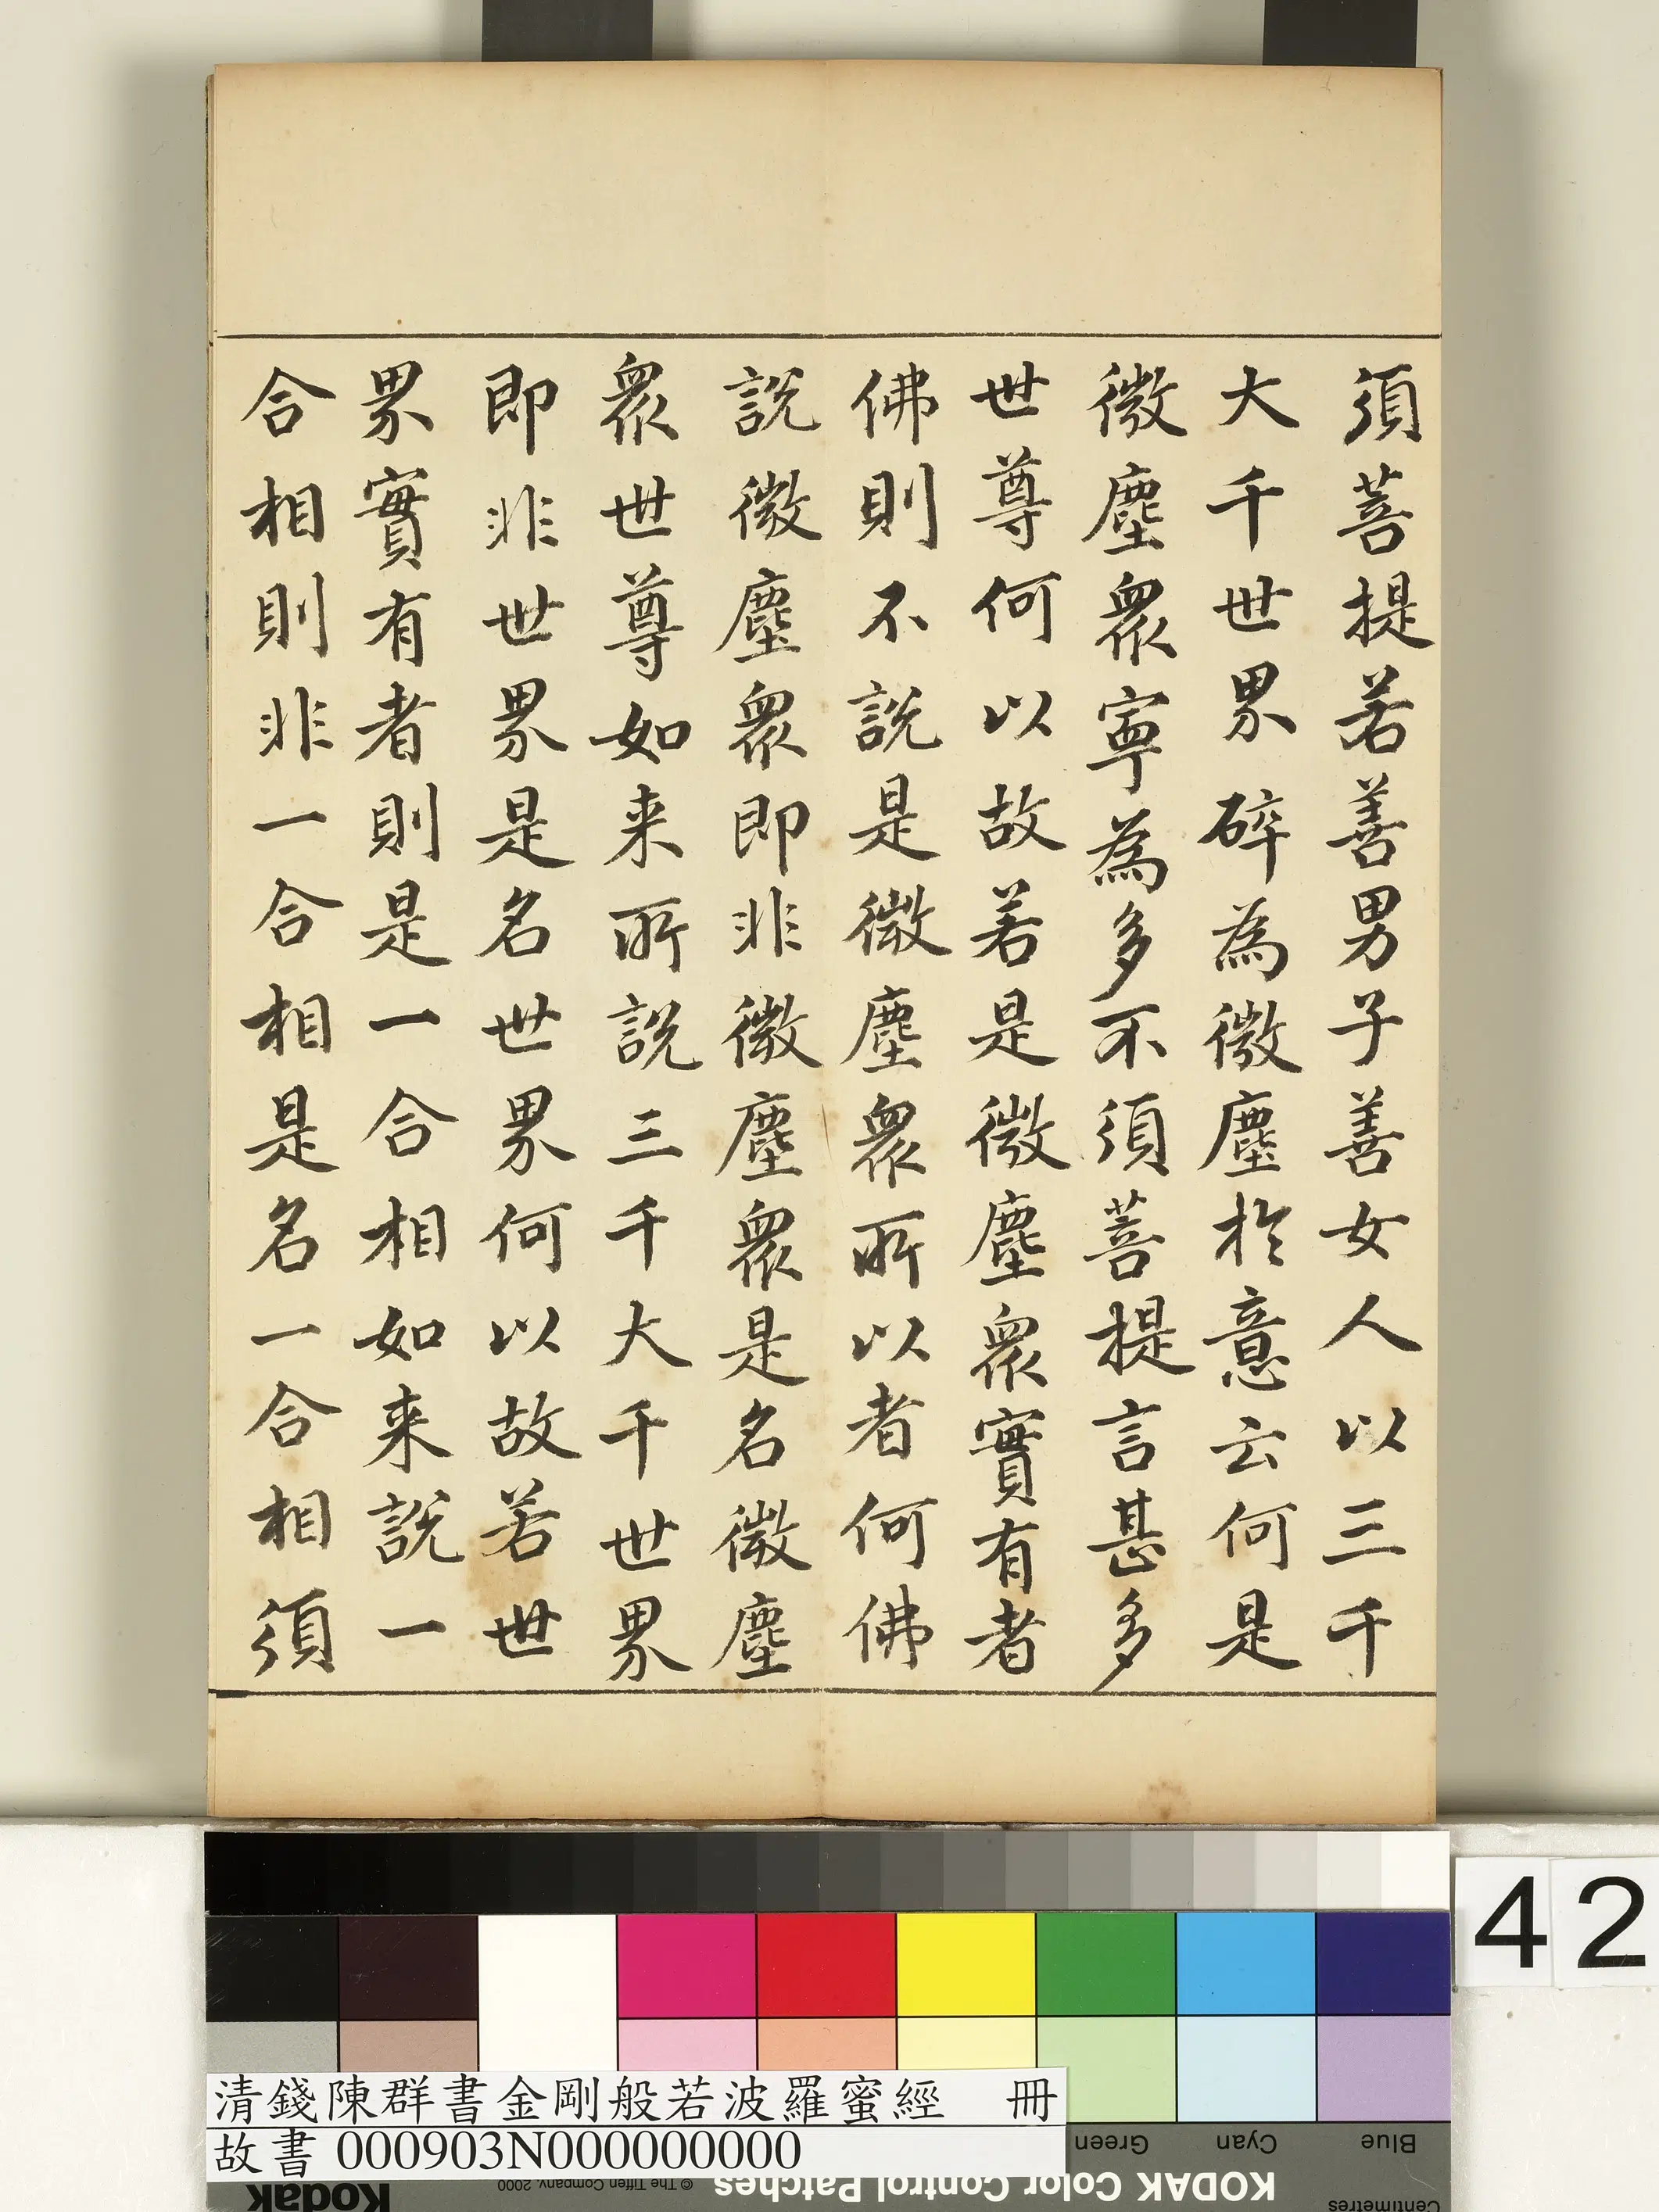 須菩提若善男子善女人以三千
大千世界碎為微塵於意云何是
微塵眾寧為多不須菩提言甚多
世尊何以故若是微塵眾實有者
佛則不說是微塵眾所以者何佛
說微塵眾即非微塵眾是名微塵
眾世尊如来所說三千大千世界
即非世界是名世界何以故若世
界實有者則是一合相如来說一
合相則非一合相是名一合相須
42
清錢陳群書金剛般若波羅蜜經 冊
故書 000903N000000000
Green Cyan Blue
Kodak © The Tiffen Company, 2000 KODAK Color Control Patches Centimetres